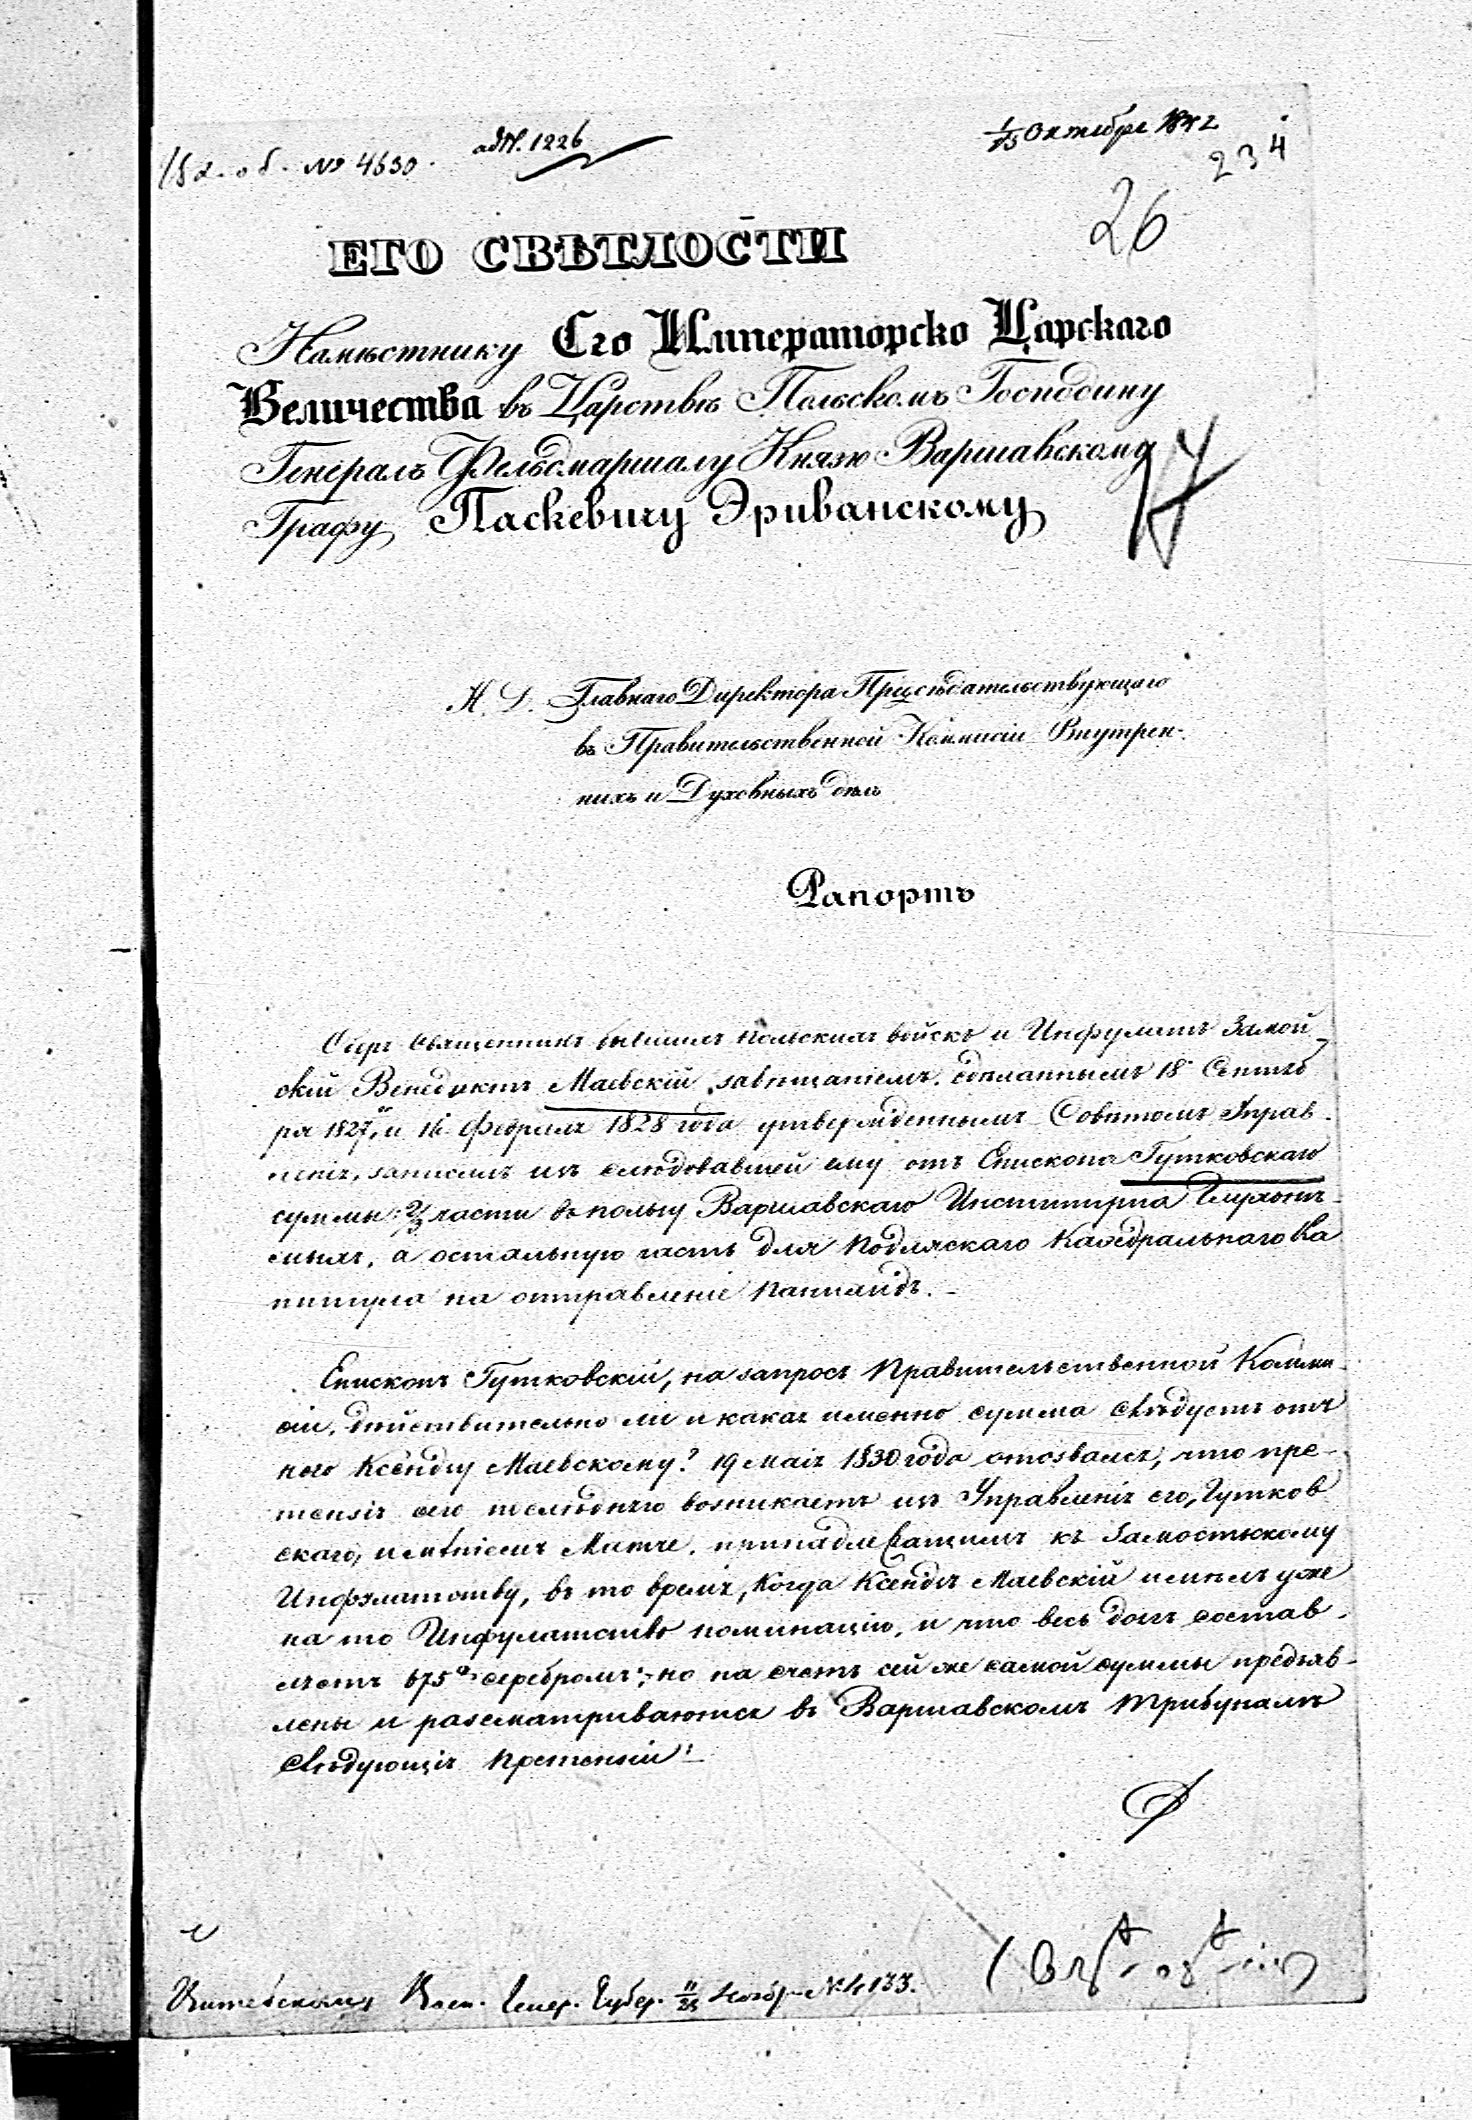 № 4630.
ad N. 1226
1/13 Октября 1842
234
26
ЕГО СВѢТЛОСТИ
Намѣстнику Его Императорско Царскаго
Величества въ Царствѣ Польскомъ Господину
Генералъ Фельдмаршалу Князю Варшавскому
Графу Паскевичу Эриванскому
Главнаго Директора Предсѣдательствующаго
въ Правительственной Коммисіи Внутрен-
нихъ и Духовныхъ дѣлъ
Рапортъ
Священникъ бывшихъ Польскихъ войскъ и Инфулатъ Замой-
скій Венедиктъ Маевскій завѣщаніемъ, сдѣланнымъ 18 Сентяб
ря 1827, и Февраля 1828 года утвержденнымъ Совѣтомъ Управ-
ленія, записалъ изъ слѣдовавшей ему отъ Епископа Гутковскаго
суммы: 2/3 части въ пользу Варшавскаго Института Глухонѣ-
мыхъ, а остальную часть для Подляскаго Каѳедральнаго Ка
питула на отправленіе панихидъ.
Епископъ Гутковскій, на запросъ Правительственной Комми-
сіи, дѣйствительно ли и какая именно сумма слѣдуетъ отъ
него Ксендзу Маевскому? 19 Маія 1830 года отозвался, что пре-
тензія сего послѣдняго возникаетъ изъ Управленія его, Гутков
скаго, имѣніемъ Матче, принадлежащимъ къ Замостскому
Инфулатству, въ то время, когда Ксендзъ Маевскій имѣлъ уже
на то Инфулатство номинацію, и что весь долгъ состав-
ляетъ 675 р. серебромъ; но на счетъ сей же самой суммы предъяв-
лены и разсматриваются въ Варшавскомъ Трибуналѣ
слѣдующія претензіи:
Витебскому Воен. Генер. Губер. 11/23 Ноябр. № 4133.